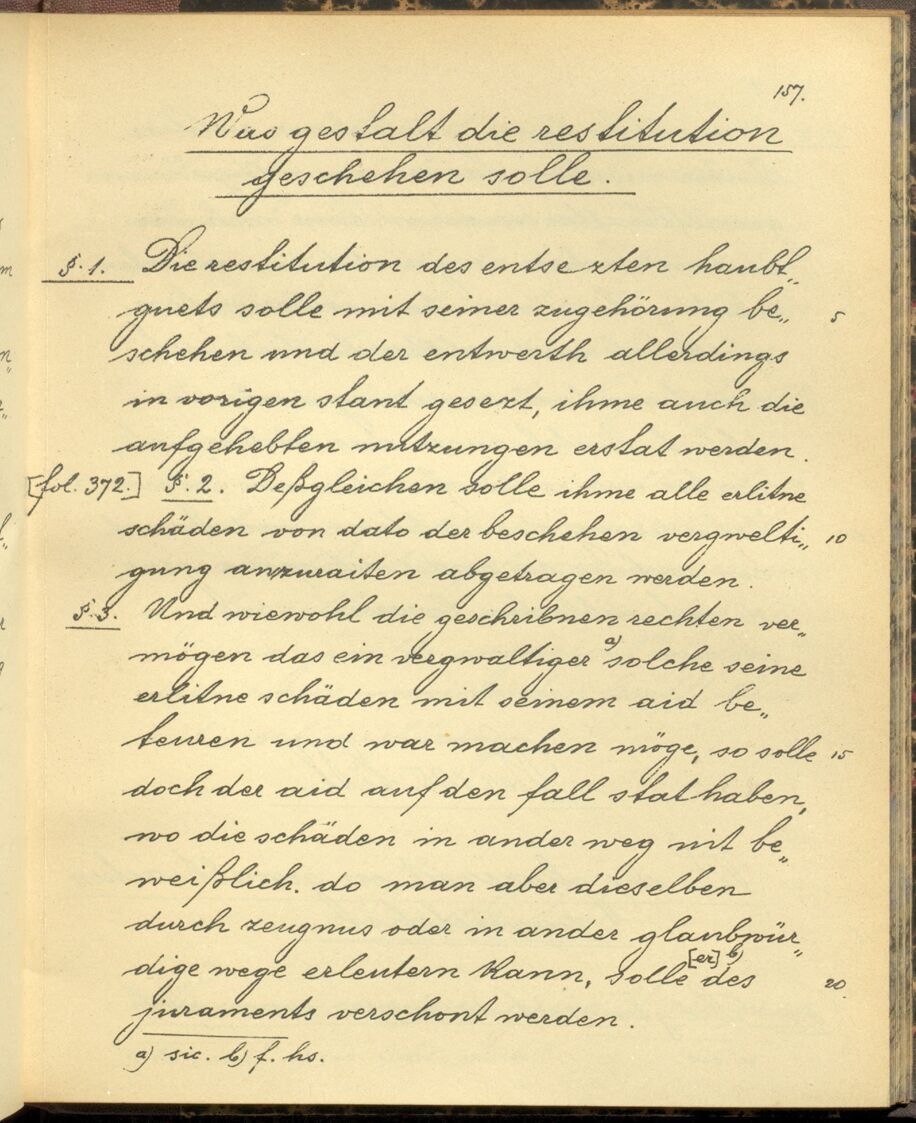 157.
Was gestalt die restitution
geschehen solle.
§. 1. Die restitution des entsezten haubt„
guets solle mit seiner zugehörung be„ 5
schehen und der entwerth allerdings
in vorigen stant gesezt, ihme auch die
aufgehebten nutzungen erstat werden.
[fol. 372.] §. 2. Deßgleichen solle ihme alle erlitne
schäden von dato der beschehen vergwelti„ 10
gung anzuraiten abgetragen werden.
§. 3. Und wiewohl die geschribnen rechten ver„
mögen das ein vergwaltiger a) solche seine
erlitne schäden mit seinem aid be„
teuren und war machen möge, so solle 15
doch der aid auf den fall stat haben,
wo die schäden in ander weg nit be„
weißlich. do man aber dieselben
durch zeugnus oder in ander glaubwür„
dige wege erleutern kann, solle [er] b) des 20
juraments verschont werden.
a) sic. b) f. hs.